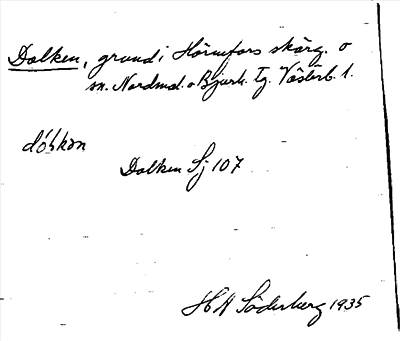 Dalken, grund i Hörnefors skärg. o
sn. Nordmal. o Bjurh. tg. Västerb. l.
dóḷkən
Dalken Sj 107
H A Söderberg 1935